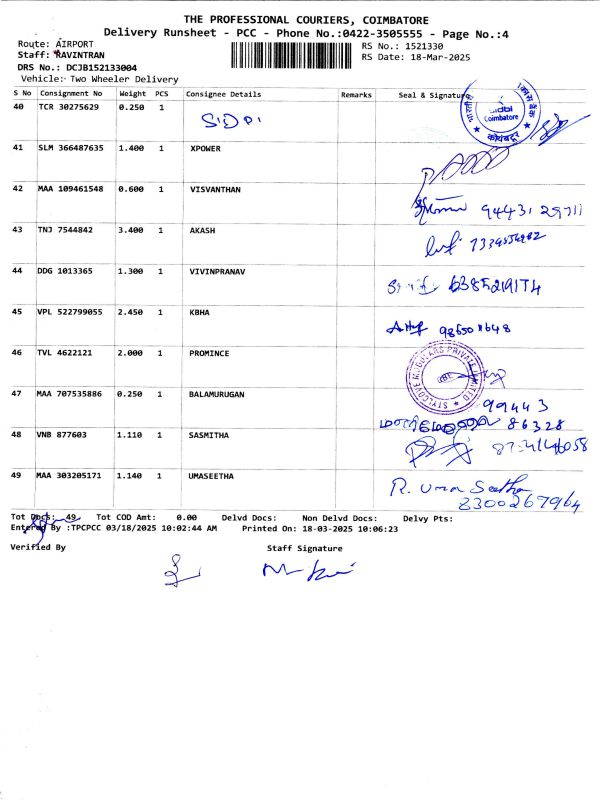 THE PROFESSIONAL COURIERS, COIMBATORE
Delivery Runsheet - PCC - Phone No.:0422-3505555 - Page No.:4
Route: AIRPORT
RS No.: 1521330
Staff: RAVINTRAN
RS Date: 18-Mar-2025
DRS No.: DCJB152133004
Vehicle: Two Wheeler Delivery
S No Consignment No Weight PCS Consignee Details Remarks Seal & Signature
40 TCR 30275629 0.250 1 SIDBI
Coimbatore
कोयंबटूर
41 SLM 366487635 1.400 1 XPOWER
42 MAA 109461548 0.600 1 VISVANTHAN
43 TNJ 7544842 3.400 1 AKASH
44 DDG 1013365 1.300 1 VIVINPRANAV
6385219174
45 VPL 522799055 2.450 1 KBHA
46 TVL 4622121 2.000 1 PROMINCE
PRIVATE LIMITED
47 MAA 707535886 0.250 1 BALAMURUGAN
99443
86328
48 VNB 877603 1.110 1 SASMITHA
49 MAA 303205171 1.140 1 UMASEETHA
R. Uma Seetha
Tot Docs: 49 Tot COD Amt: 0.00 Delvd Docs: Non Delvd Docs: Delvy Pts:
Entered By :TPCPCC 03/18/2025 10:02:44 AM Printed On: 18-03-2025 10:06:23
Verified By Staff Signature